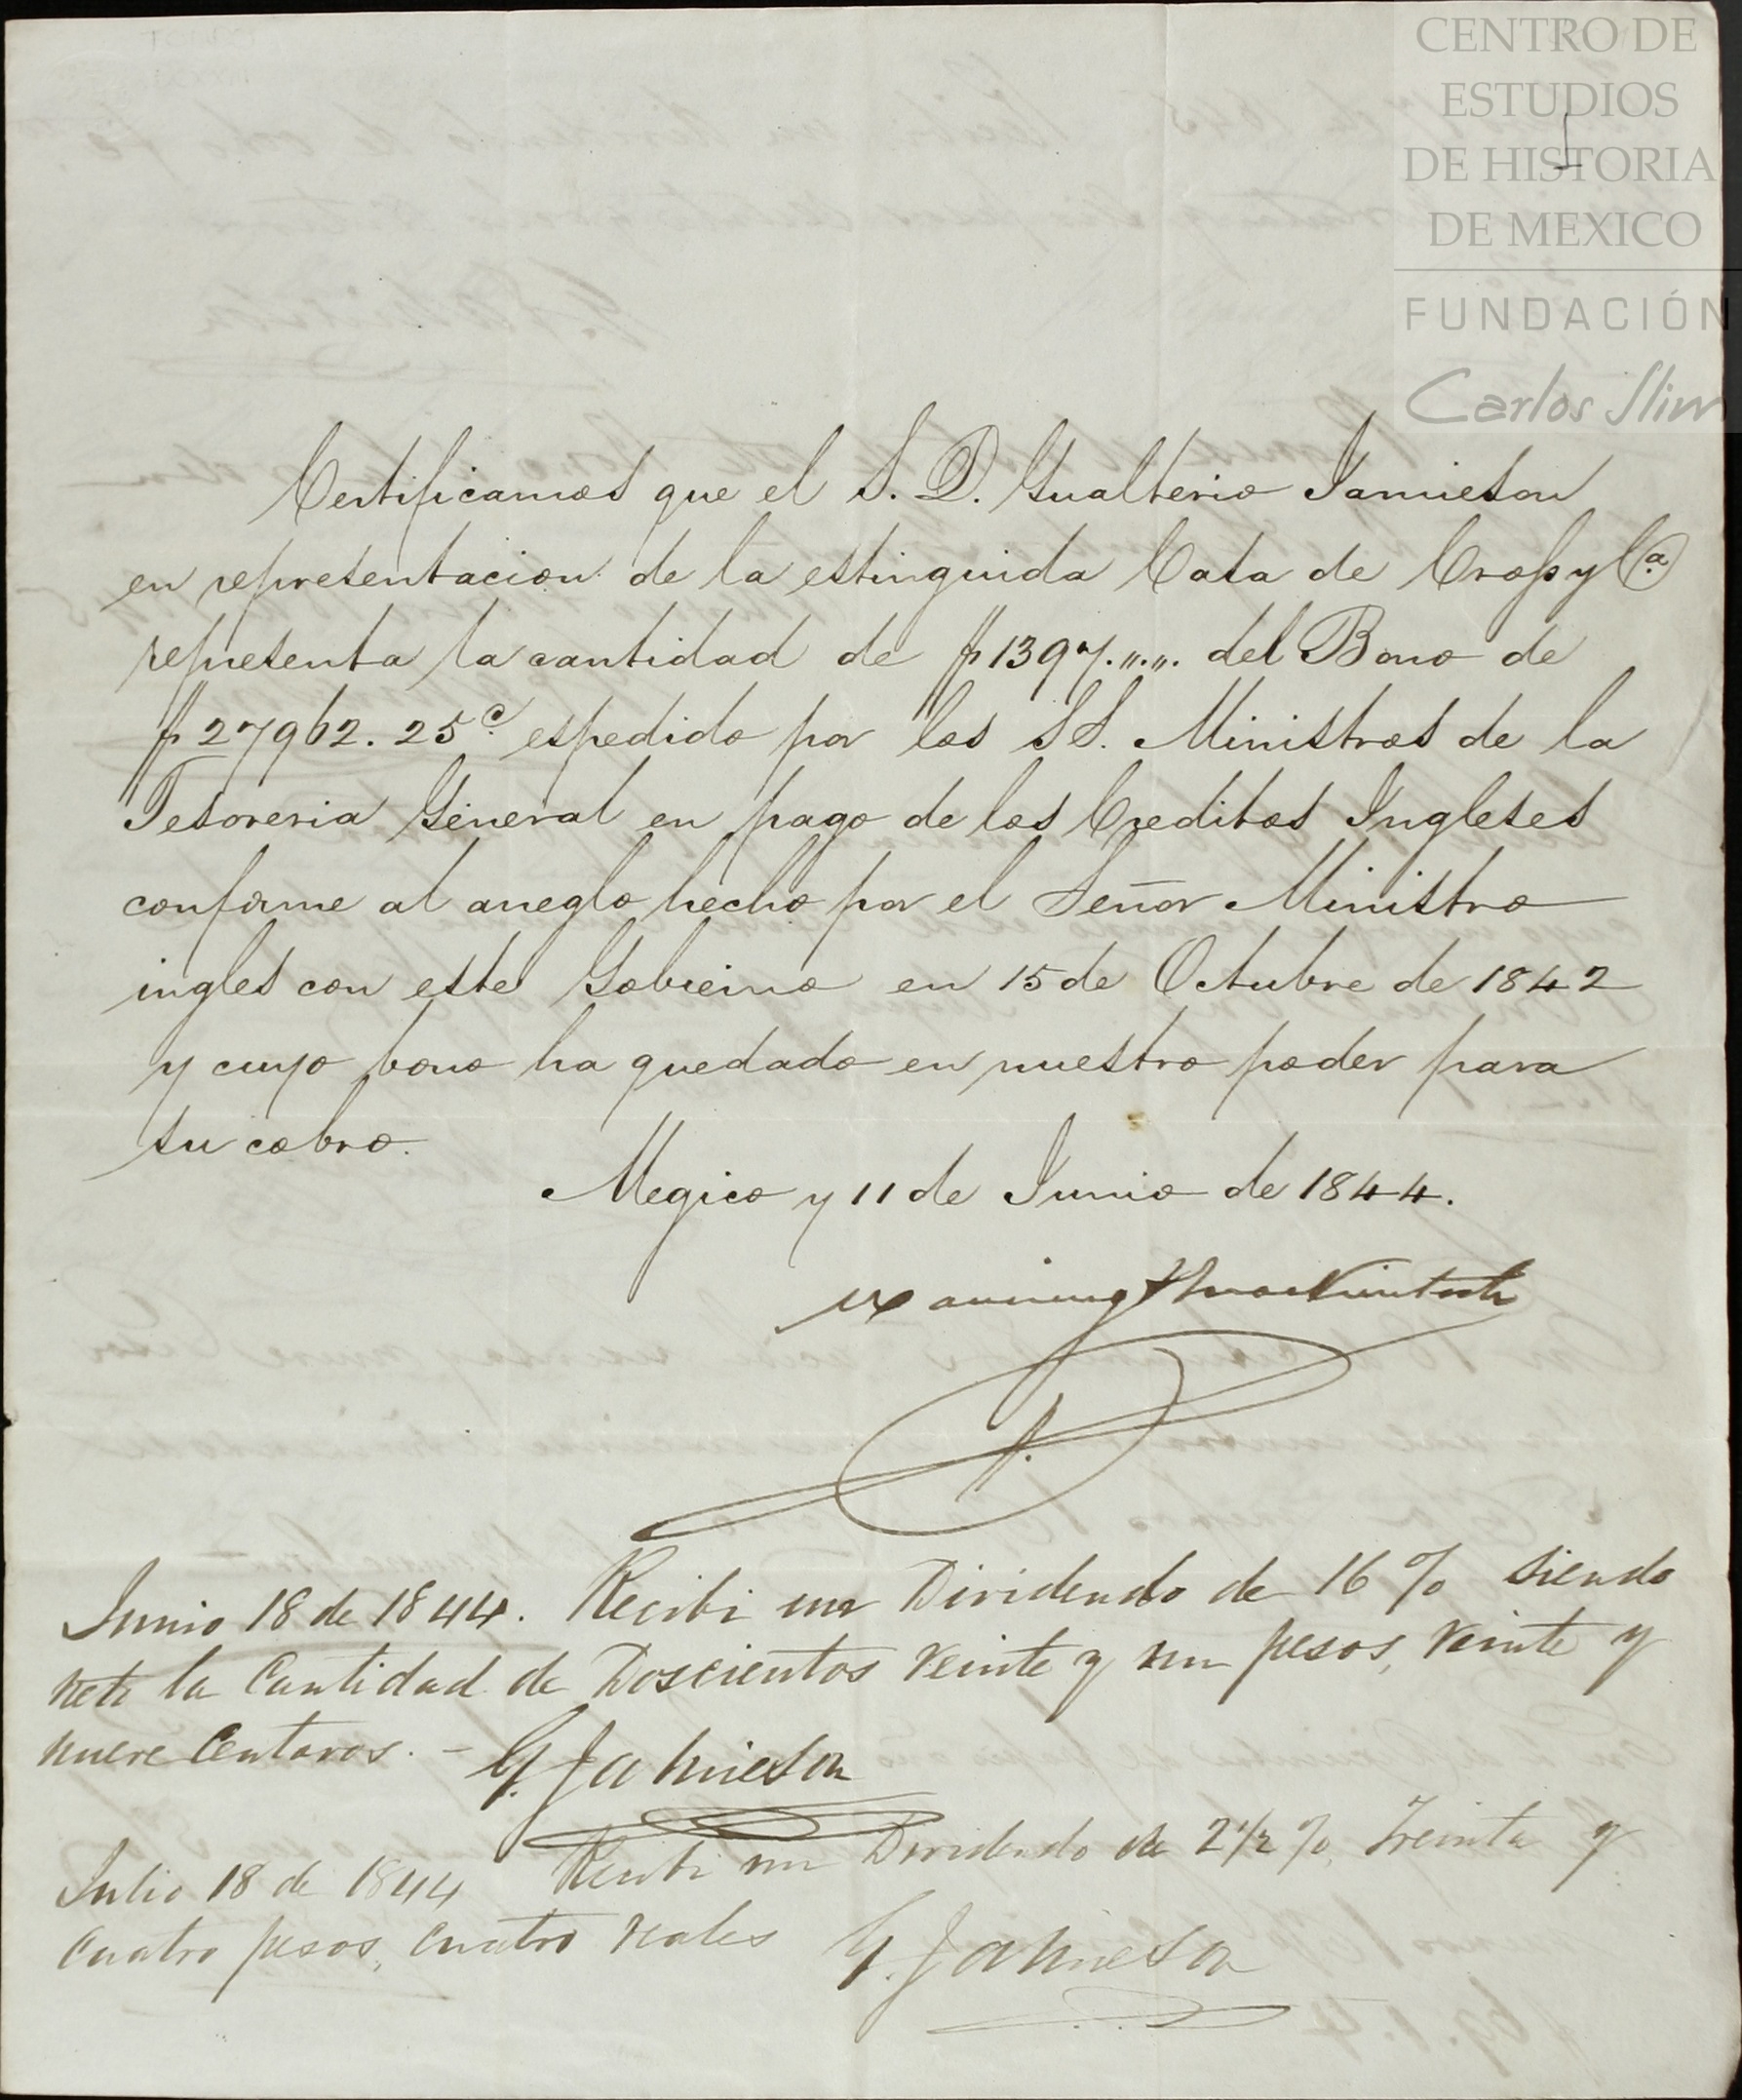 CENTRO DE
ESTUDIOS
DE HISTORIA
DE MEXICO
FUNDACIÓN
Carlos Slim
Certificamos que el S. D. Gualterio Jamieson
en representacion de la estinguida Casa de Cross y Cª
representa la cantidad de $ 1397.,,.,,. del Bono de
$ 27962. 25c. espedido por los SS. Ministros de la
Tesoreria General en pago de los Creditos Ingleses
conforme al arreglo hecho por el Señor Ministro
ingles con este Gobierno en 15 de Octubre de 1842
y cuyo bono ha quedado en nuestro poder para
su cobro.
Megico y 11 de Junio de 1844.
Manning & Mackintosh
Junio 18 de 1844. Recibi un Dividendo de 16 % siendo
neto la Cantidad de Doscientos veinte y un pesos, veinte y
nueve Centavos. - G. Jamieson
Julio 18 de 1844 Recibi un Dividendo de 2 1/2 %, Treinta y
cuatro pesos, cuatro reales G. Jamieson